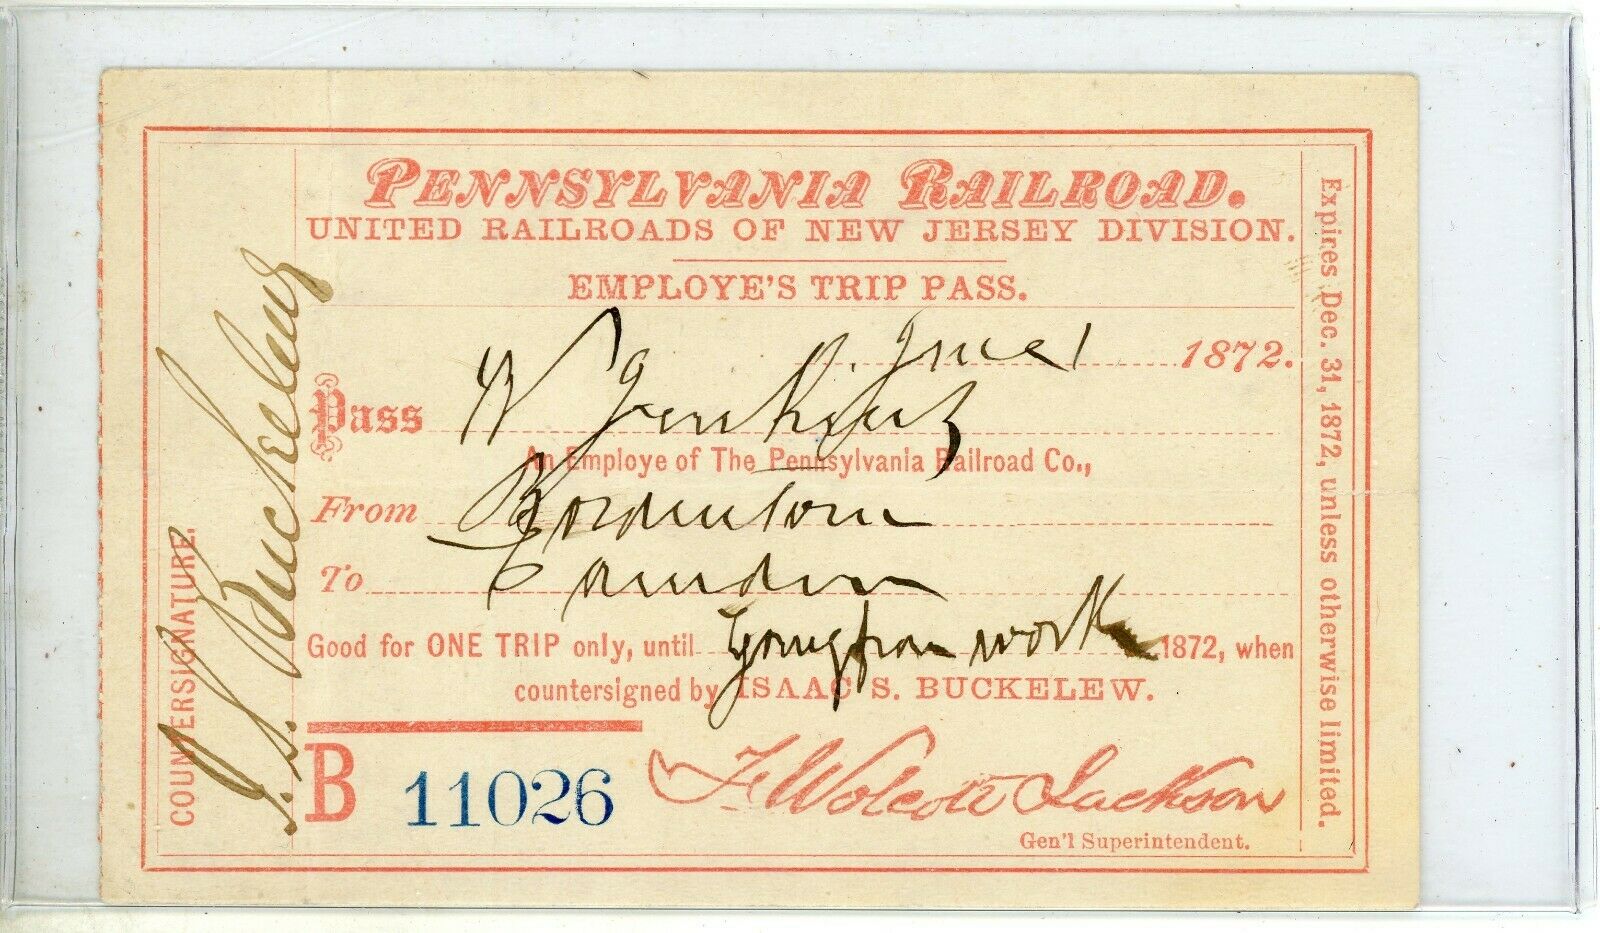 PENNSYLVANIA RAILROAD.
UNITED RAILROADS OF NEW JERSEY DIVISION.
EMPLOYE'S TRIP PASS.
June 1 1872.
Pass W
An Employe of The Pennsylvania Railroad Co.,
From Bordentown
To Camden
Good for ONE TRIP only, until going from work 1872, when
countersigned by ISAAC S. BUCKELEW.
B 11026
F Wolcott Jackson
Gen'l Superintendent.
COUNTERSIGNATURE.
I. S. Buckelew
Expires Dec. 31, 1872, unless otherwise limited.